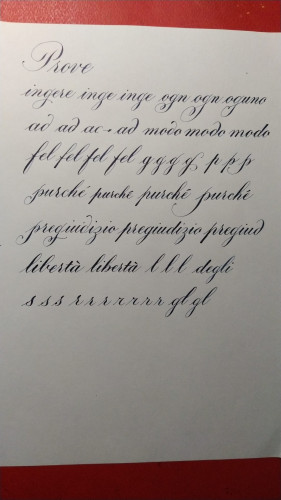 Prove
ingere inge inge ogn ogn oguno
ad ad ac - ad modo modo modo
fel fel fel fel g g g g p p p
purché purché purché purché
pregiudizio pregiudizio pregiud
libertà libertà l l l degli
s s s r r r r r r r gl gl